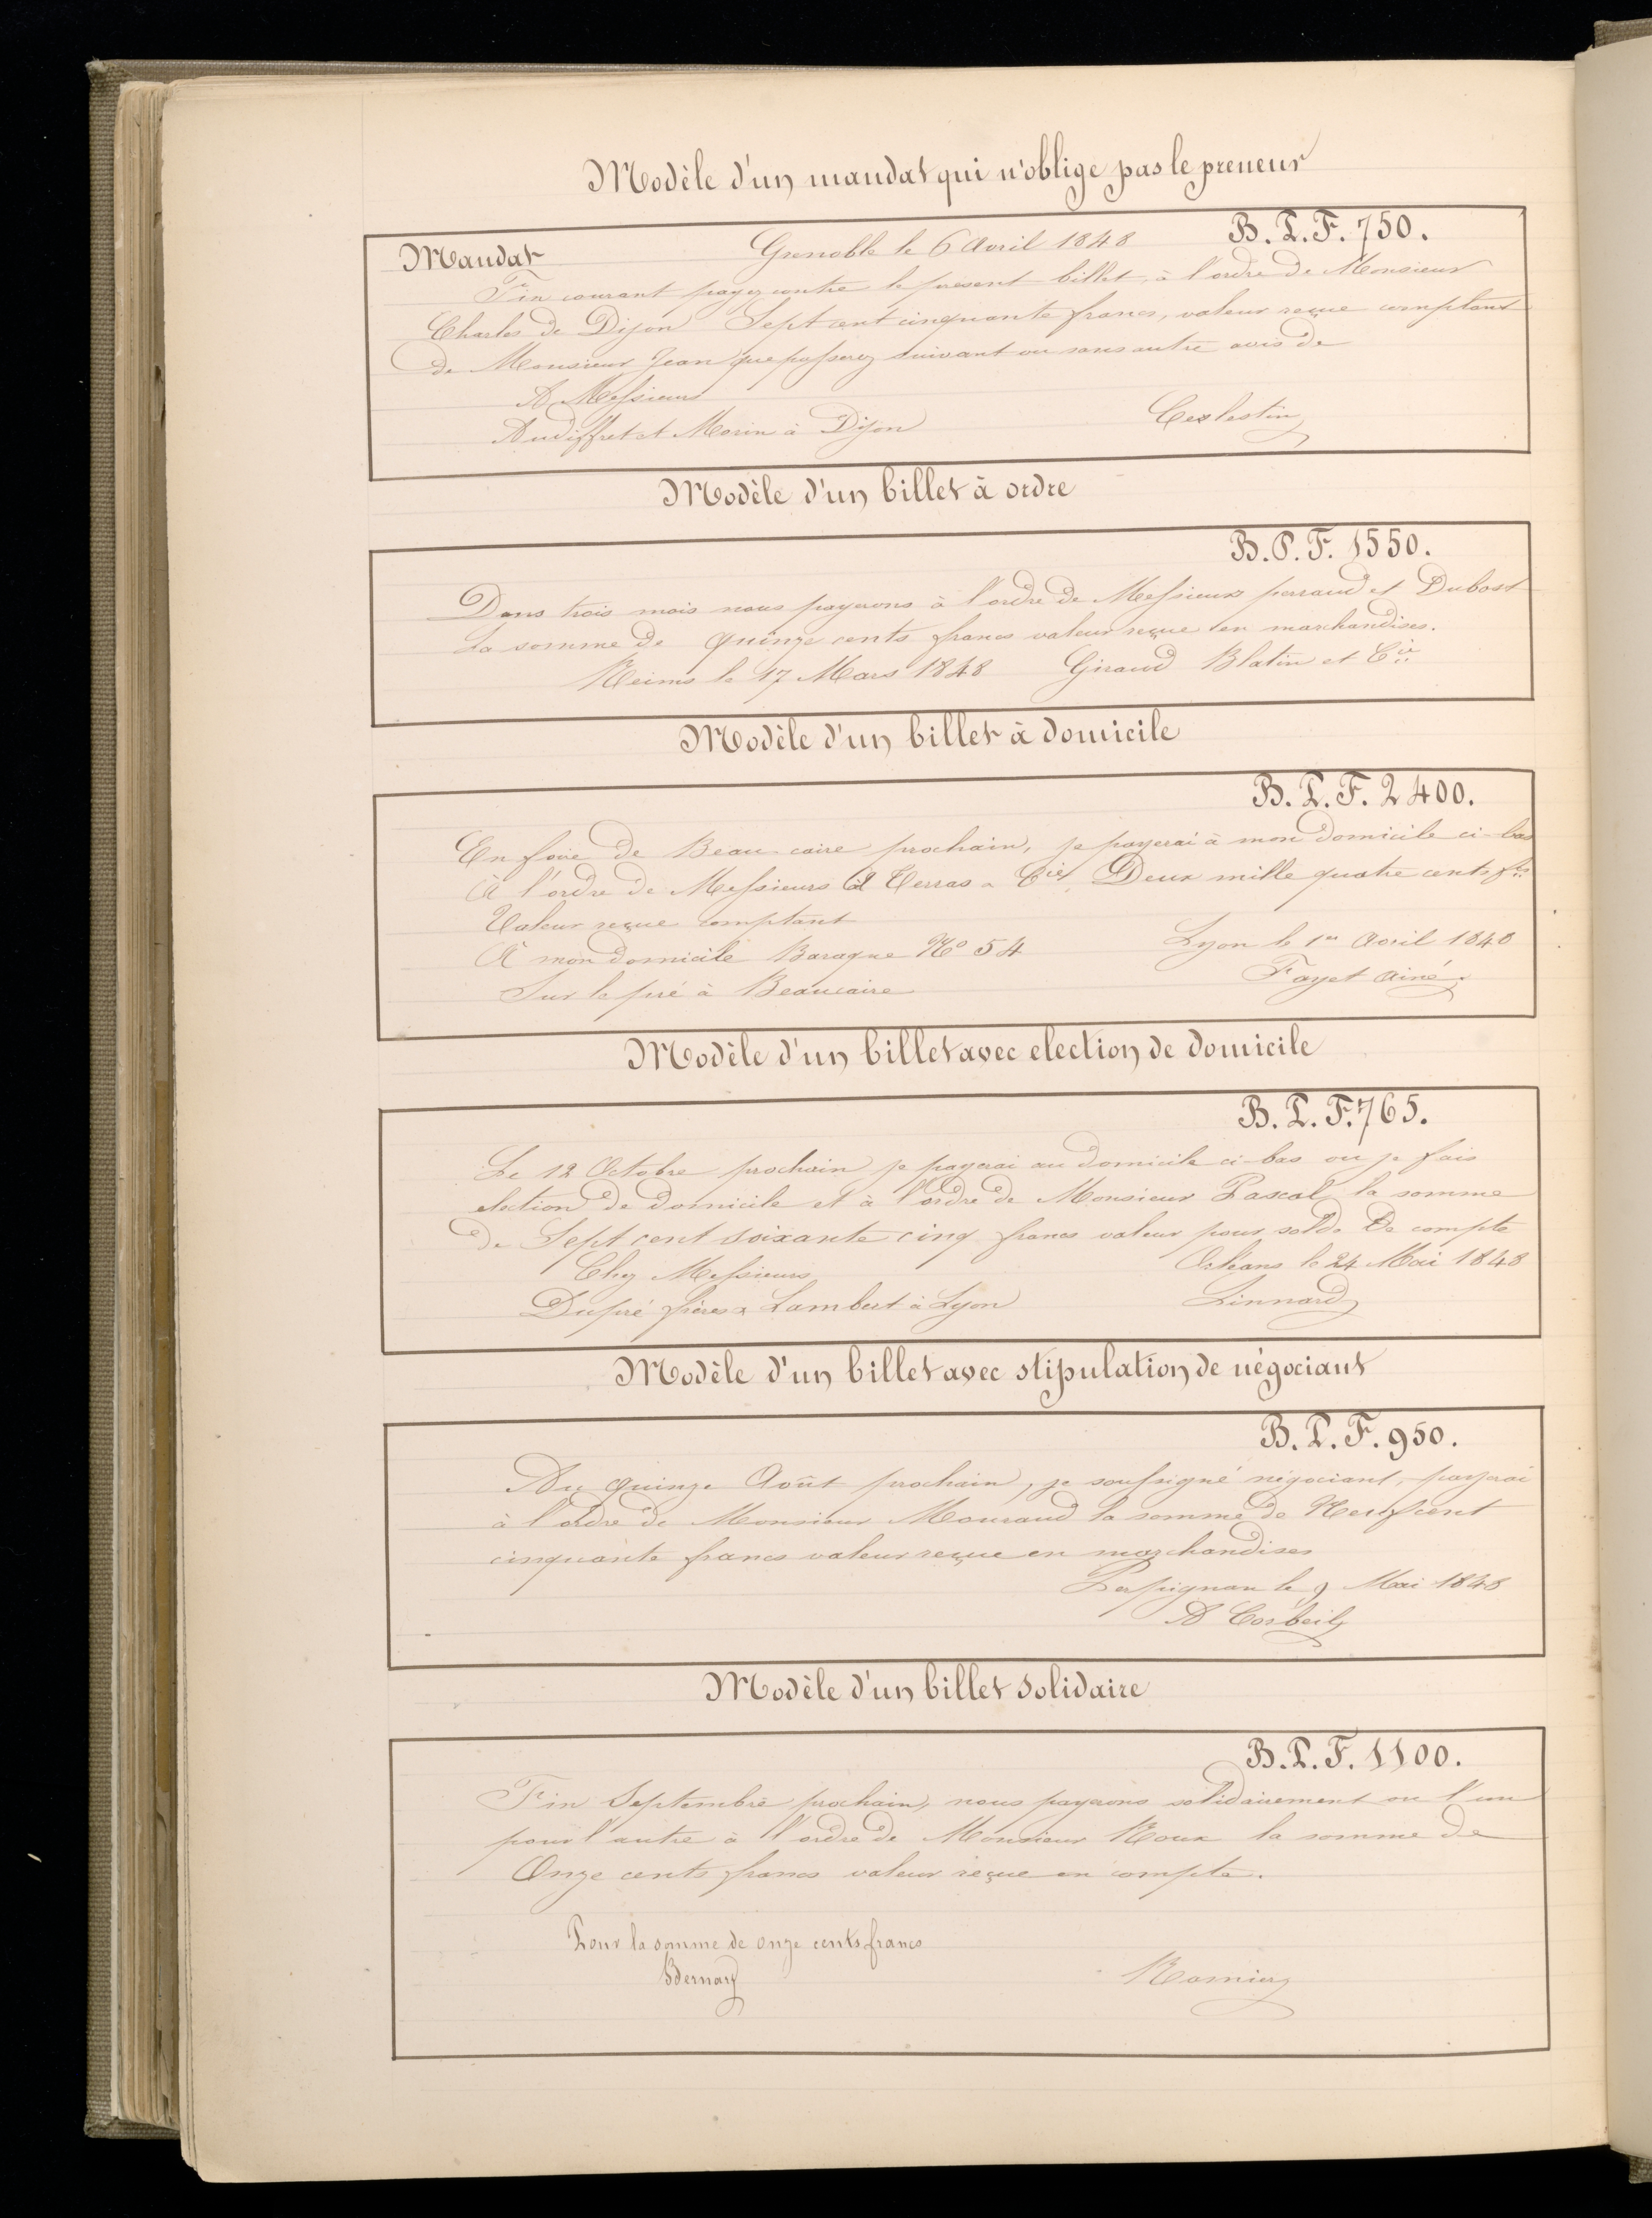 Modèle d'un mandat qui n'oblige pas le preneur
Mandat Grenoble le 6 Avril 1848 B. P. F. 750.
Fin courant payez contre le présent billet, à l'ordre de Monsieur
Charles de Dijon Sept cent cinquante francs, valeur reçue comptant
de Monsieur Jean que passerez suivant ou sans autre avis de
A Messieurs
Audiffret et Morin à Dijon Ceslestin
Modèle d'un billet à ordre
B. P. F. 1550.
Dans trois mois nous payerons à l'ordre de Messieurs perraud et Dubost
La somme de quinze cents francs valeur reçue en marchandises.
Reims le 17 Mars 1848 Giraud Blatin et Cie
Modèle d'un billet à domicile
B. P. F. 2400.
En foire de Beaucaire prochain, je payerai à mon domicile ci-bas
A l'ordre de Messieurs Terras & Cie, Deux mille quatre cents frs
Valeur reçue comptant
A mon domicile Baraque No 54 Lyon le 1er Avril 1848
Sur le pré à Beaucaire Fayet Ainé.
Modèle d'un billet avec election de domicile
B. P. F. 765.
Le 12 Octobre prochain je payerai au domicile ci-bas ou je fais
election de domicile et à l'ordre de Monsieur Pascal la somme
de Sept cent soixante cinq francs valeur pour solde De compte
Chez Messieurs Orléans le 24 Mai 1848
Dupré frères & Lambert à Lyon Linnard
Modèle d'un billet avec stipulation de négociant
B. P. F. 950.
Au quinze Août prochain, je soussigné négociant, payerai
à l'ordre de Monsieur Mouraud la somme de Neuf cent
cinquante francs valeur reçue en marchandises
Perpignan le 9 Mai 1848
A Corbeil
Modèle d'un billet solidaire
B. P. F. 1100.
Fin Septembre prochain, nous payerons solidairement ou l'un
pour l'autre à l'ordre de Monsieur Roux la somme de
Onze cents francs valeur reçue en compte.
Pour la somme de onze cents francs
Bernard Romier